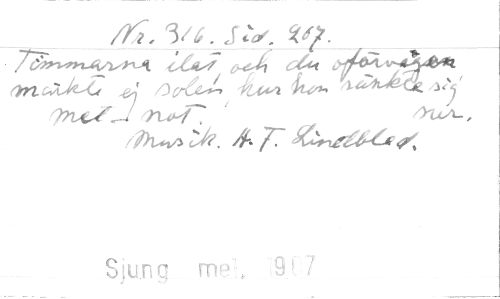 Nr. 316. Sid. 207.
Timmarna ilat, och du oförvägen
märkte ej solen, hur hon sänkte sig
mel_not. ner.
Musik. A. F. Lindblad.
Sjung mel. 1907